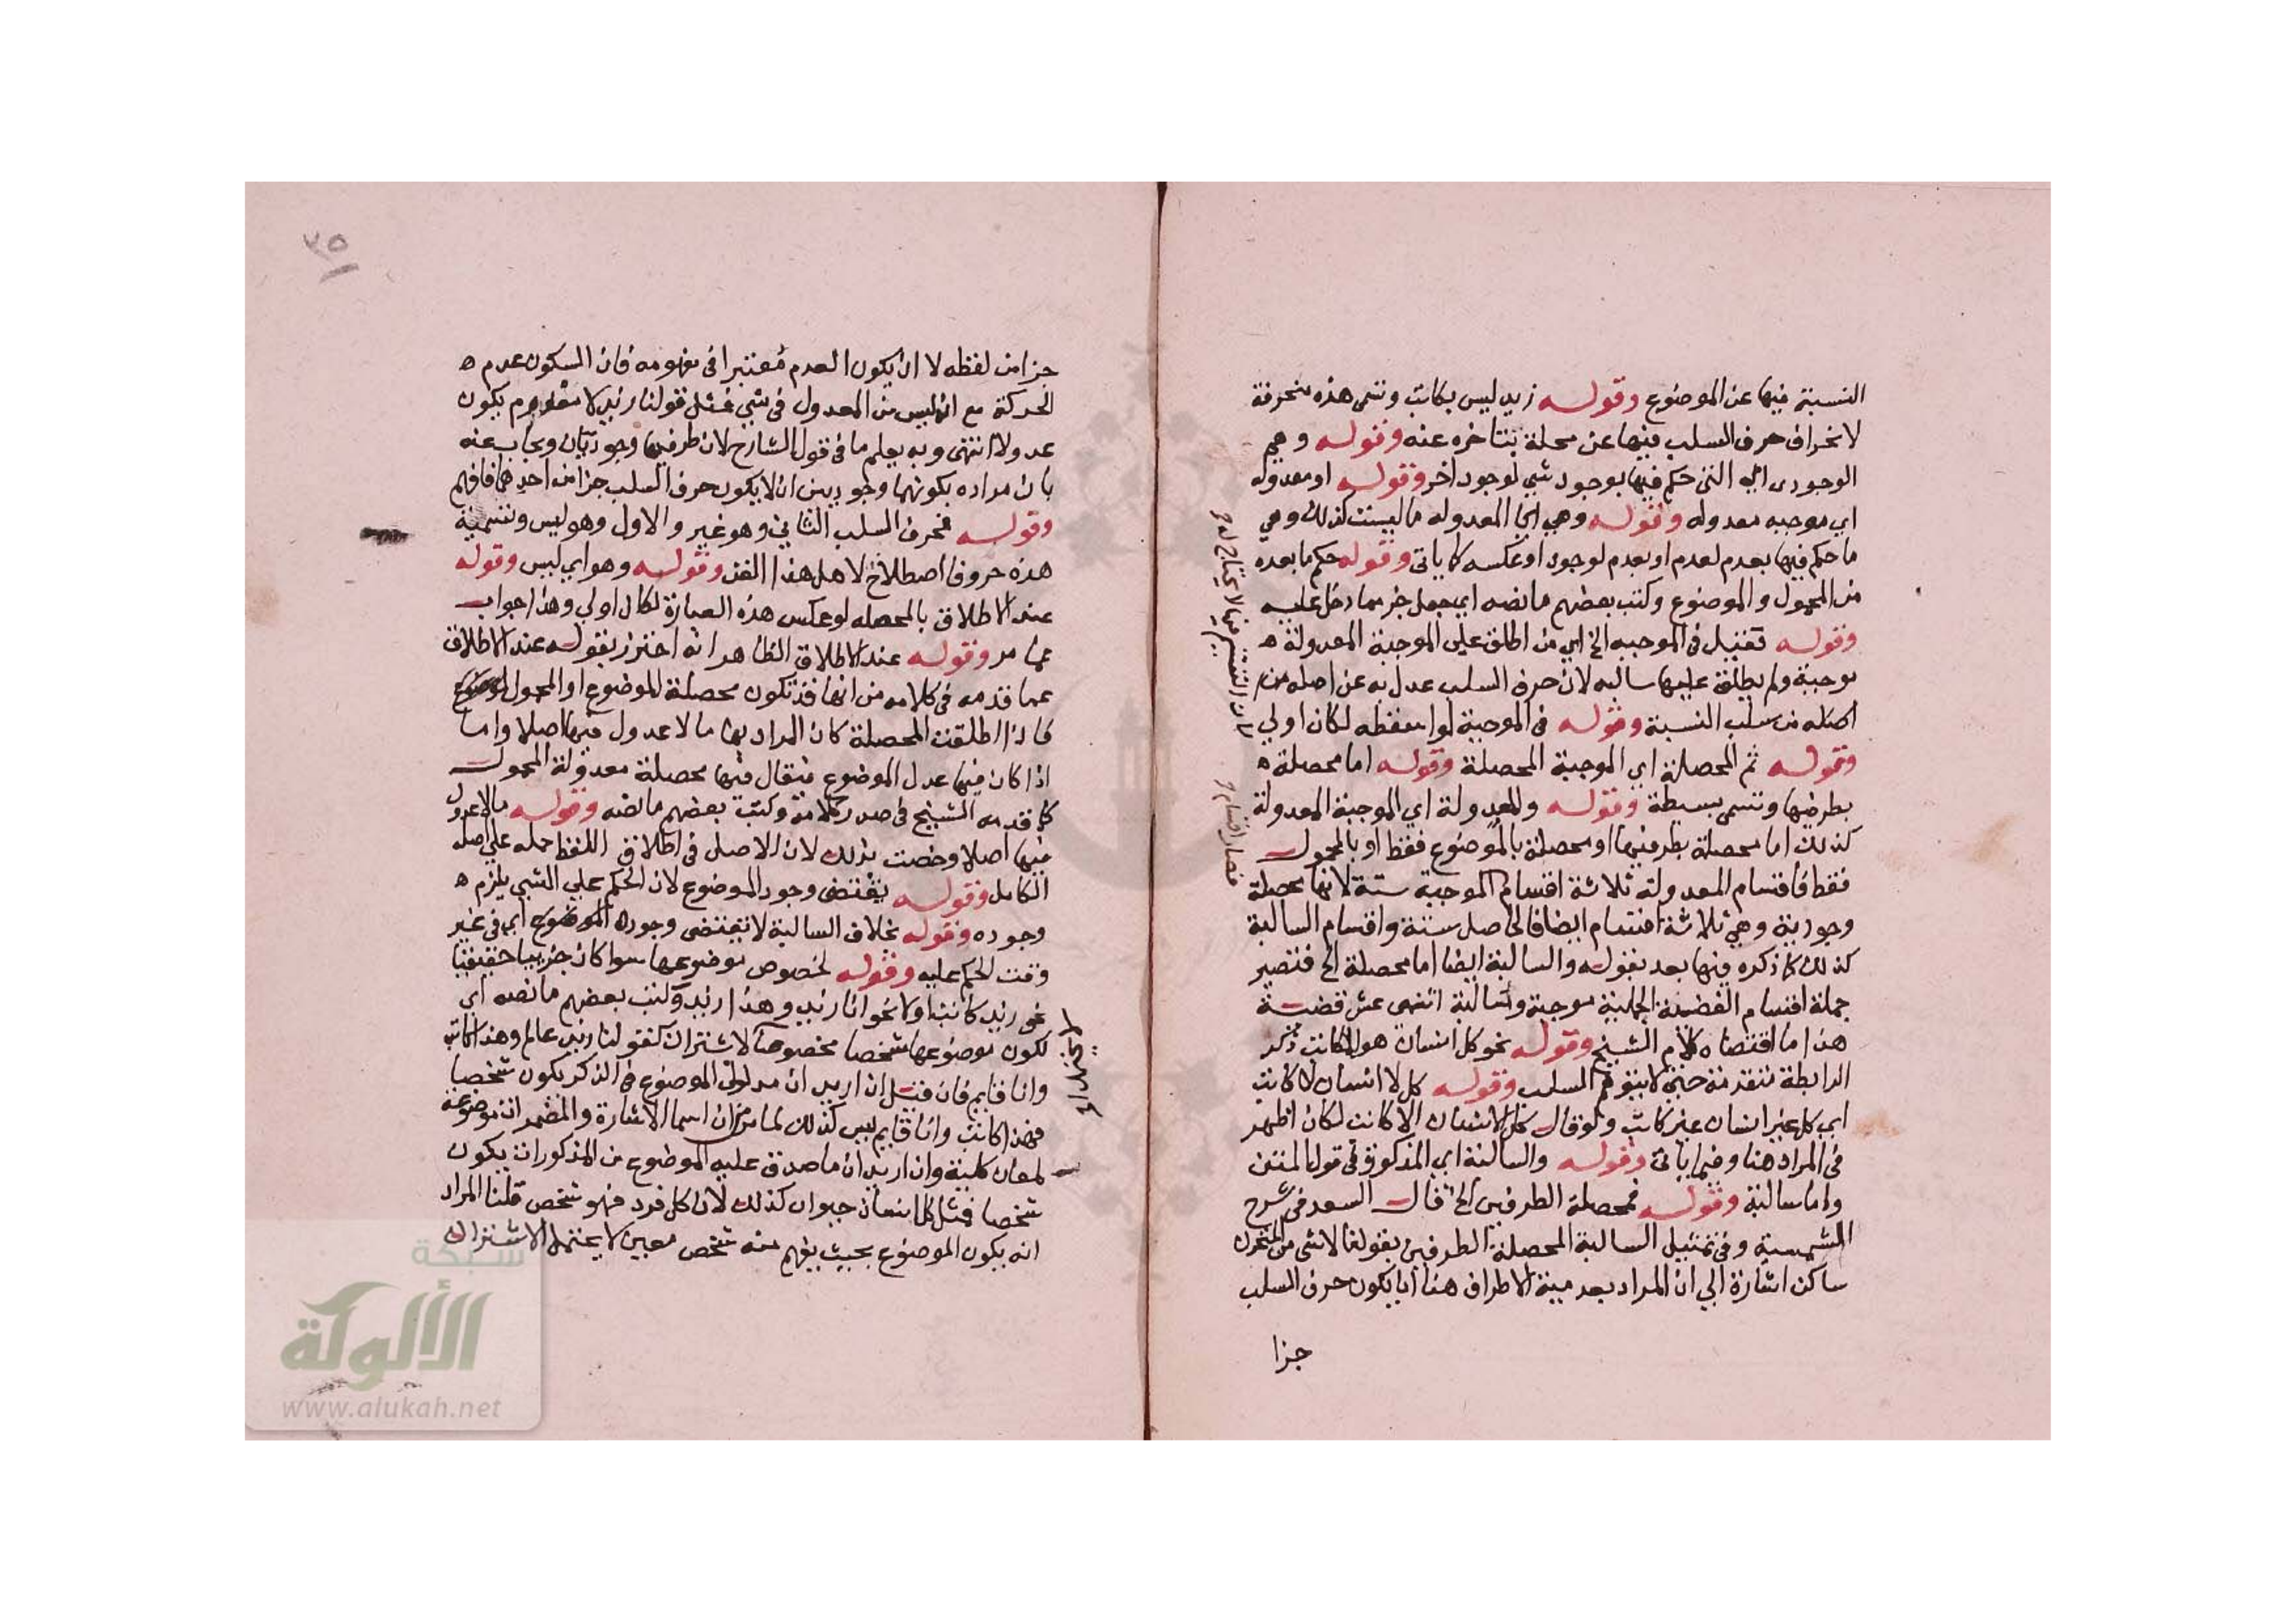 النسبة فيها عن الموضوع وقوله زيد ليس بكاتب وتسمى هذه منحرفة
لانحراف حرف السلب فيها عن محله بتاخره عنه وقوله وهي
الوجودى اي التى حكم فيها بوجود شي لوجود اخر وقوله او معدوله
اي موجبه معدوله وقوله وهي اي المعدوله ما ليست كذلك وهي
ما حكم فيها بعدم لعدم او بعدم لوجود او عكسه كما ياتى وقوله حكم ما بعده
من المحمول والموضوع وكتب بعضهم ما نصه اي جعل جز مما دخل عليه
وقوله فقيل فى الموجبه الخ اي من اطلق على الموجبة المعدولة ه
موجبة ولم يطلق عليها سالبه لان حرف السلب عدل به عن اصله من
اصله من سلب النسبة وقوله فى الموجبة لو اسقطه لكان اولي
وقوله ثم المحصلة اي الموجبة المحصلة وقوله اما محصلة ه
بطرفيها وتسمى بسيطة وقوله والمعدولة اي الموجبة المعدولة
كذلك اما محصلة بطرفيها او محصلة بالموضوع فقط او بالمحمول
فقط فاقسام المعدولة ثلاثة اقسام الموجبة ستة لانها محصلة
وجودية وهي ثلاثة اقسام ايضا فالحاصل ستة واقسام السالبة
كذلك كما ذكره فيها بعد بقوله والسالبة ايضا اما محصلة الخ فتصير
جملة اقسام القضية الحملية موجبة وسالبة اثنى عشر قضية
هذا ما اقتضاه كلام الشيخ وقوله نحو كل انسان هو الكاتب ذكر
الرابطة متقدمة حتى لا يتوهم السلب وقوله كل لا انسان لا كاتب
اي كل غير انسان غير كاتب ولو قال كل الانسان الا كاتب لكان اظهر
فى المراد هنا وفيما ياتى وقوله والسالبة اي المذكورة فى قول المتن
واما سالبة وقوله فمحصلة الطرفين الخ قال السعد فى شرح
الشمسية وفى تمثيل السالبة المحصلة الطرفين بقولنا لا شى من المتحرك
ساكن اشارة الي ان المراد بعدمية الاطراف هنا ان يكون حرف السلب
جزا
لان التقسيم فيها لا يحتاج له
فصار اقسام
٣٥
جزا من لفظه لا ان يكون العدم معتبرا فى مفهومه فان السكون عدم ه
الحركة مع انه ليس من المعدول فى شي فمثل قولنا زيد لا معدوم يكون
عدولا انتهى وبه يعلم ما فى قول الشارح لان طرفيها وجوديان ويجاب عنه
بان مراده بكونهما وجوديين ان لا يكون حرف السلب جزا من احدهما فافهم
وقوله فحرف السلب الثاني وهو غير والاول وهو ليس وتسمية
هذه حروفا اصطلاح لاهل هذا الفن وقوله وهو اي ليس وقوله
عند الاطلاق بالمحصله لو عكس هذه العبارة لكان اولي وهذا جواب
عما مر وقوله عند الاطلاق الظاهر انه احترز بقوله عند الاطلاق
عما قدمه فى كلامه من انها قد تكون محصلة الموضوع او المحمول
فاذا اطلقت المحصلة كان المراد بها ما لا عدول فيها اصلا واما
اذا كان فيها عدل الموضوع فيقال فيها محصلة معدولة المحمول
كما قدمه الشيخ فى صدر كلامه وكتب بعضهم ما نصه وقوله ما لا عدول
فيها اصلا وخصت بذلك لان الاصل فى اطلاق اللفظ حمله على اصله
الكامل وقوله يقتضى وجود الموضوع لان الحكم علي الشي يلزم ه
وجوده وقوله بخلاف السالبة لا تقتضى وجود الموضوع اي فى غير
وقت الحكم عليه وقوله لخصوص موضوعها سوا كان جزييا حقيقيا
نحو زيد كاتب او لا نحو انا زيد وهذا زيد وكتب بعضهم ما نصه اي
لكون موضوعها شخصا مخصوصا لا اشتراك كقولنا زيد عالم وهذا كاتب
وانا قايم فان قيل ان اريد ان مدلول الموضوع فى الذكر يكون شخصيا
فهذا كاتب وانا قايم ليس كذلك لما مر من ان اسما الاشارة والمضمرات موضوعة
لمعان كلية وان اريد ان ما صدق عليه الموضوع من المذكورات يكون
شخصا فمثل كل انسان حيوان كذلك لان كل فرد فهو شخص قلنا المراد
انه يكون الموضوع بحيث يفهم منه شخص معين لا يحتمل الاشتراك
شبكة
الألوكة
www.alukah.net